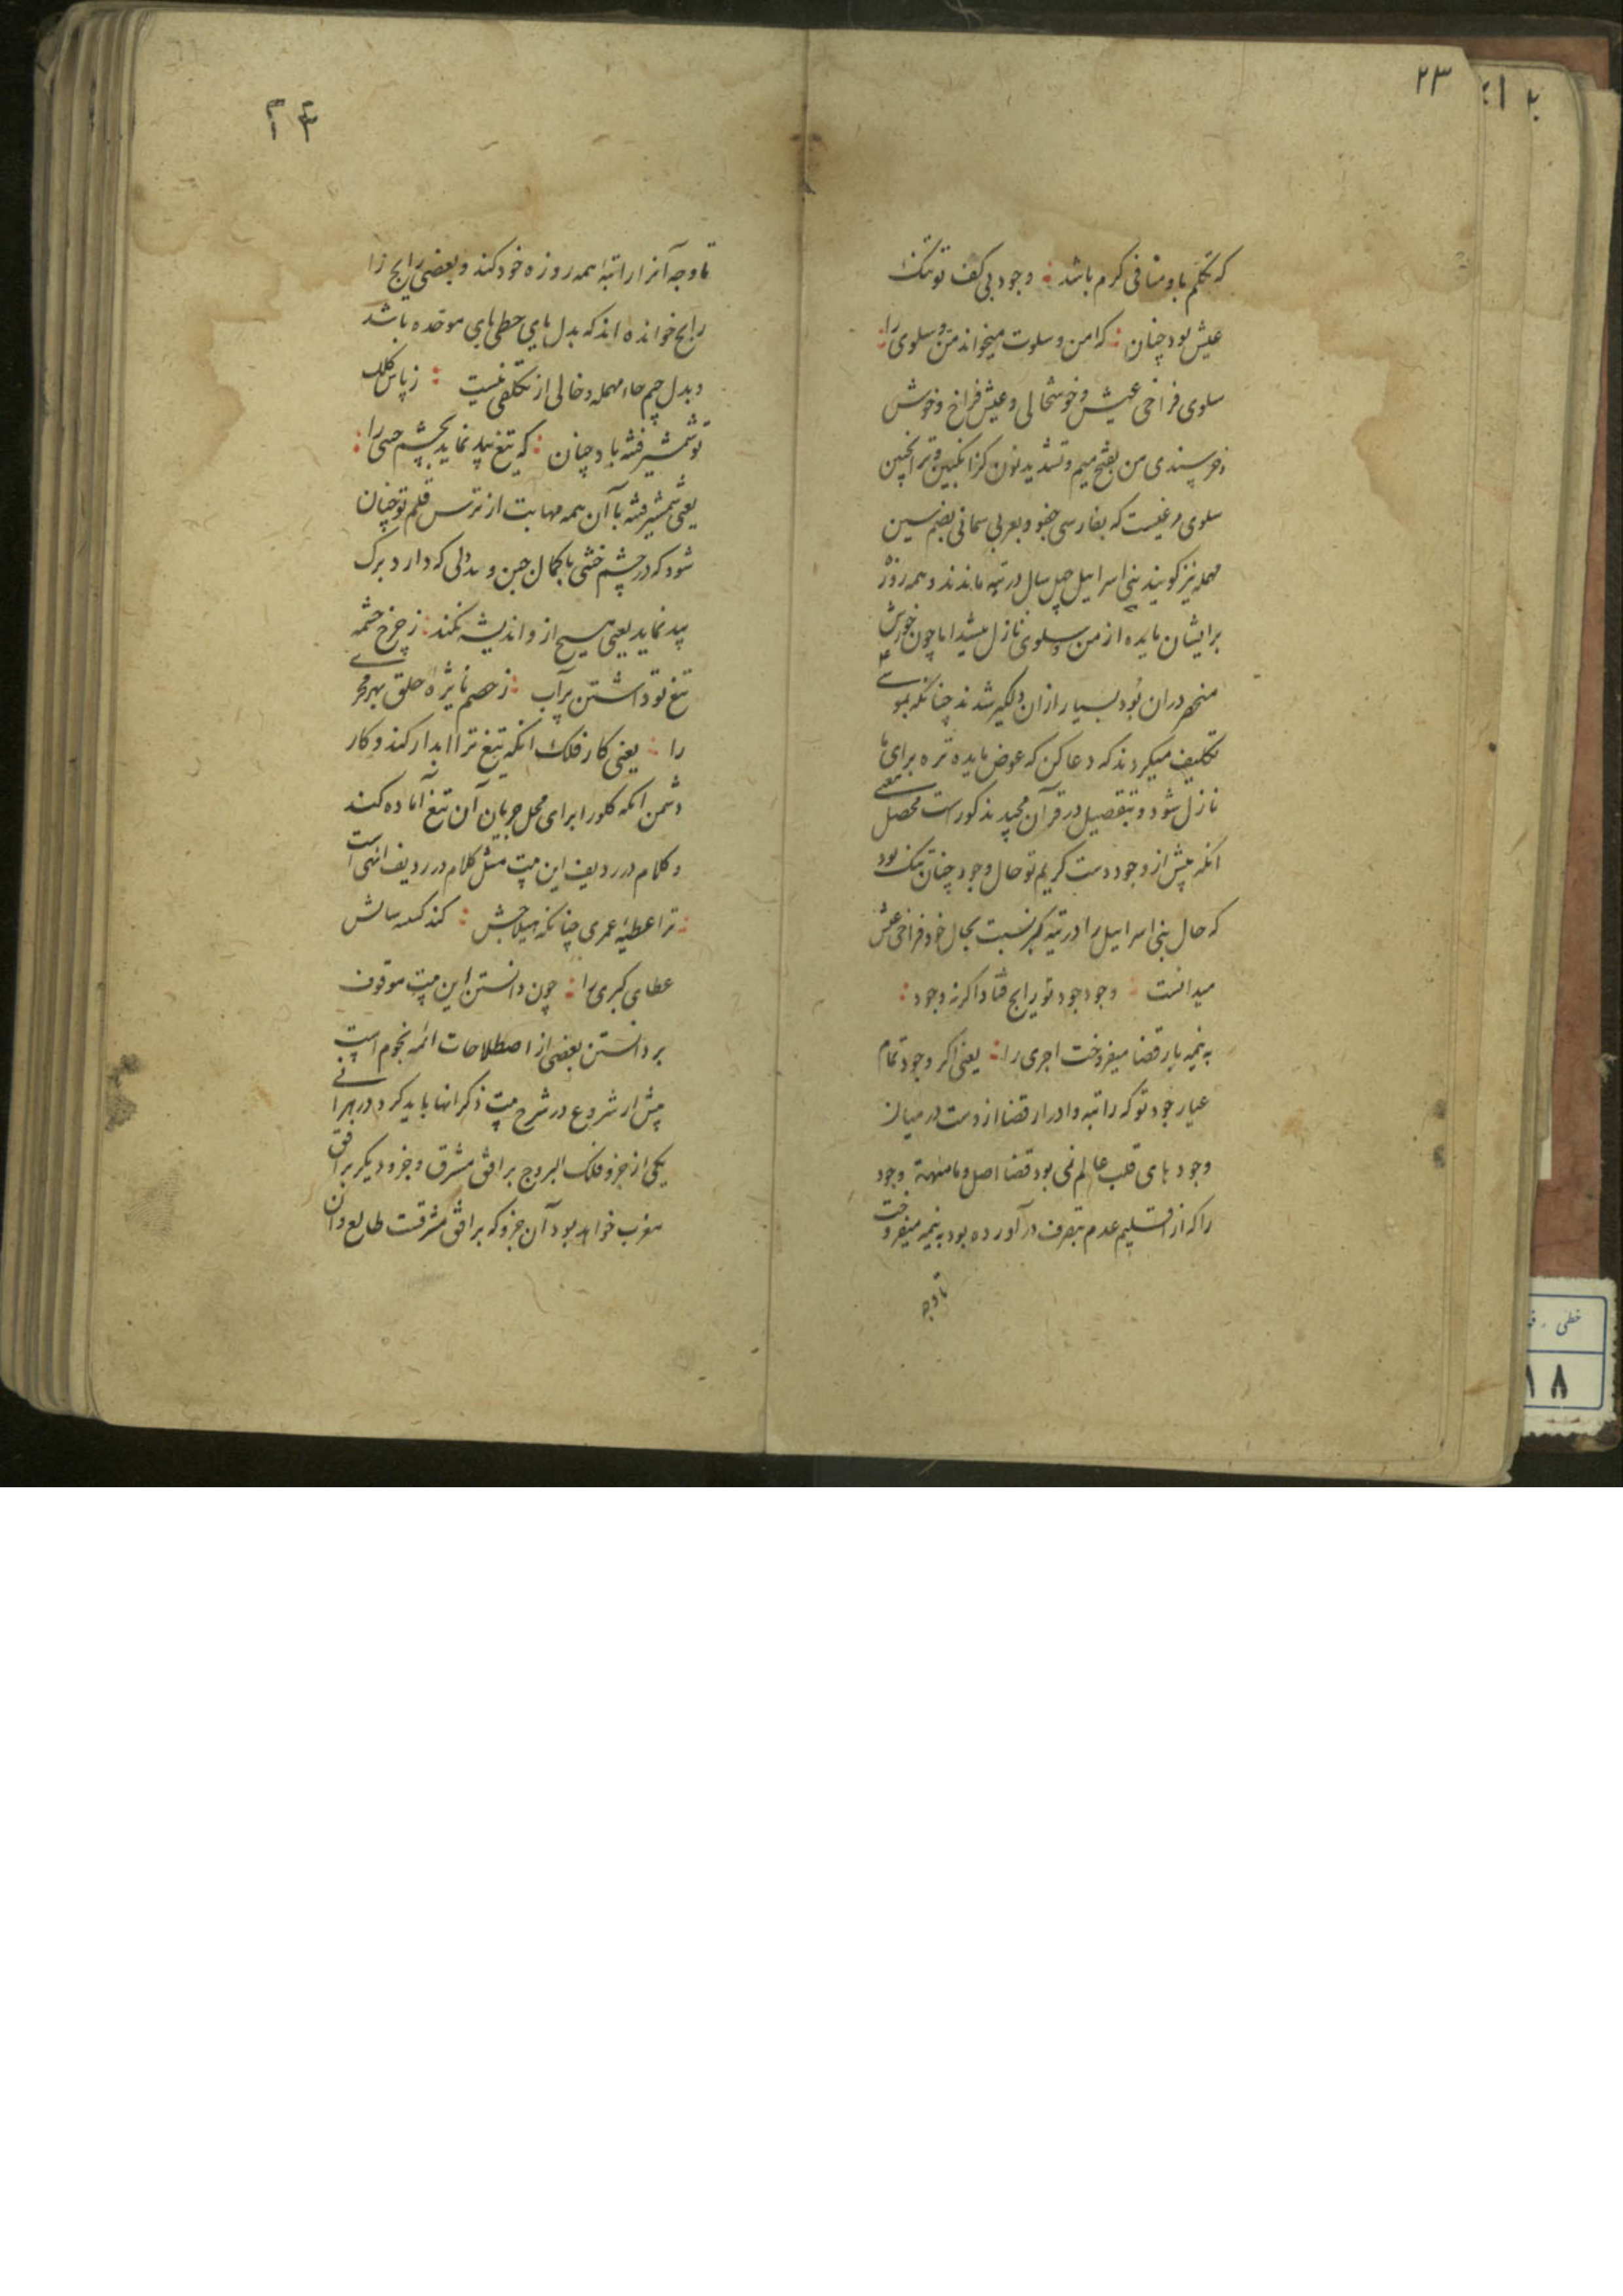 ۲۳
که تکلم با و منافی کرم باشد : وجود بی کف تو تنک
عیش بود چنان : که امن و سلوت میخواند من و سلوی را :
سلوی فراخی عیش و خوشحالی و عیش فراخ و خوش
و خرسندی من بفتح میم و تشدید نون کزانکبین و ترانکبین
سلوی مرغیست که بفارسی و بعربی سمانی بضم سین
مهمله نیز کویند بنی اسرائیل چهل سال در تیه ماندند و همه روز
برایشان مایده از من و سلوی نازل میشد اما چون خورش
منحصر دران بود بسیار ازان دلگیر شدند چنانکه بموسی
تکلیف میکردند که دعا کن که عوض مایده تره برای ما
نازل شود و بتفصیل در قرآن مجید مذکور است محصل معنی
انکه پیش از وجود دست کریم تو حال وجود چنان تنک بود
که حال بنی اسرائیل را در تیه نسبت بحال خود فراخی عیش
میدانست : وجود جود تو رایج فتاد اکرنه وجود :
به نیمه بار قضا میفروخت اجری را : یعنی اکر وجود تمام
عیار جود تو که راتبه و ادرار قضا از دست در میان
وجود های قلب عالم نمی بود قضا اصل و وجود
را که از اقلیم عدم بتصرف در آورده بود به نیمه میفروخت
تا وجه
۲۴
تا وجه آنرا راتبه همه روزه خود کند و بعضی رایج را
رابح خوانده اند که بدل یای حطی بای موحده باشد
و بدل جیم حاء مهمله و خالی از تکلفی نیست : ز پاس کلک
تو شمشیر فتنه باد چنان : که تیغ بید نماید بچشم خنثی را :
یعنی شمشیر فتنه با آن همه مهابت از ترس قلم تو چنان
شود که در چشم خنثی با کمال جبن و بددلی که دارد برک
بید نماید یعنی هیچ از و اندیشه نکند : ز چرخ چشمه
تیغ تو داشتن پر آب : ز خصم نایژه حلق بهر مجری
را : یعنی کار فلک انکه تیغ ترا ابدار کند و کار
دشمن انکه کلو را برای محل جریان آن تیغ آماده کند
و کلام در ردیف این بیت مثل کلام در ردیف است
: ترا عطیه عمری چنانکه هیلاجش : کند سالش
عطای کبری را : چون دانستن این بیت موقوف
بر دانستن بعضی از اصطلاحات ائمه نجوم است
پیش از شروع در شرح بیت ذکر انها باید کرد در هر آنی
یکی از جزو فلک البروج بر افق مشرق و جزو دیگر بر افق
مغرب خواهد بود آن جزو که بر افق مشرقست طالع و آن
خطی
۱۸